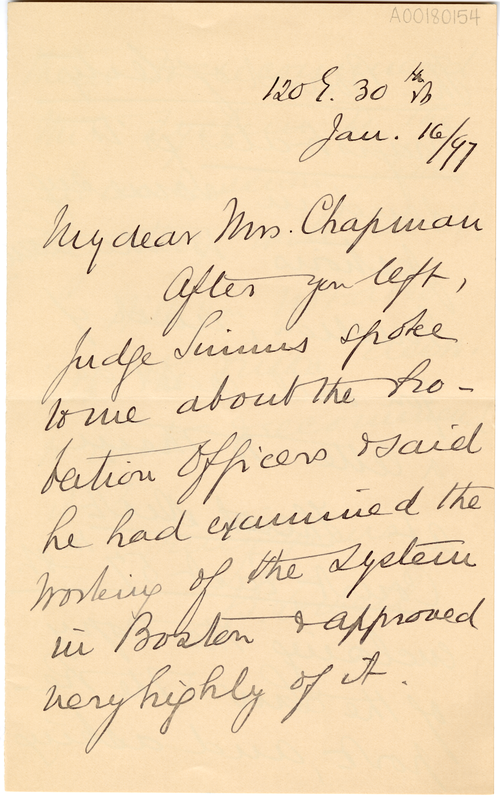 A00180154
120 E. 30th St
Jan. 16/97
My dear Mrs. Chapman
After you left,
Judge Simms spoke
to me about the Pro-
bation Officers & said
he had examined the
working of the system
in Boston & approved
very highly of it.